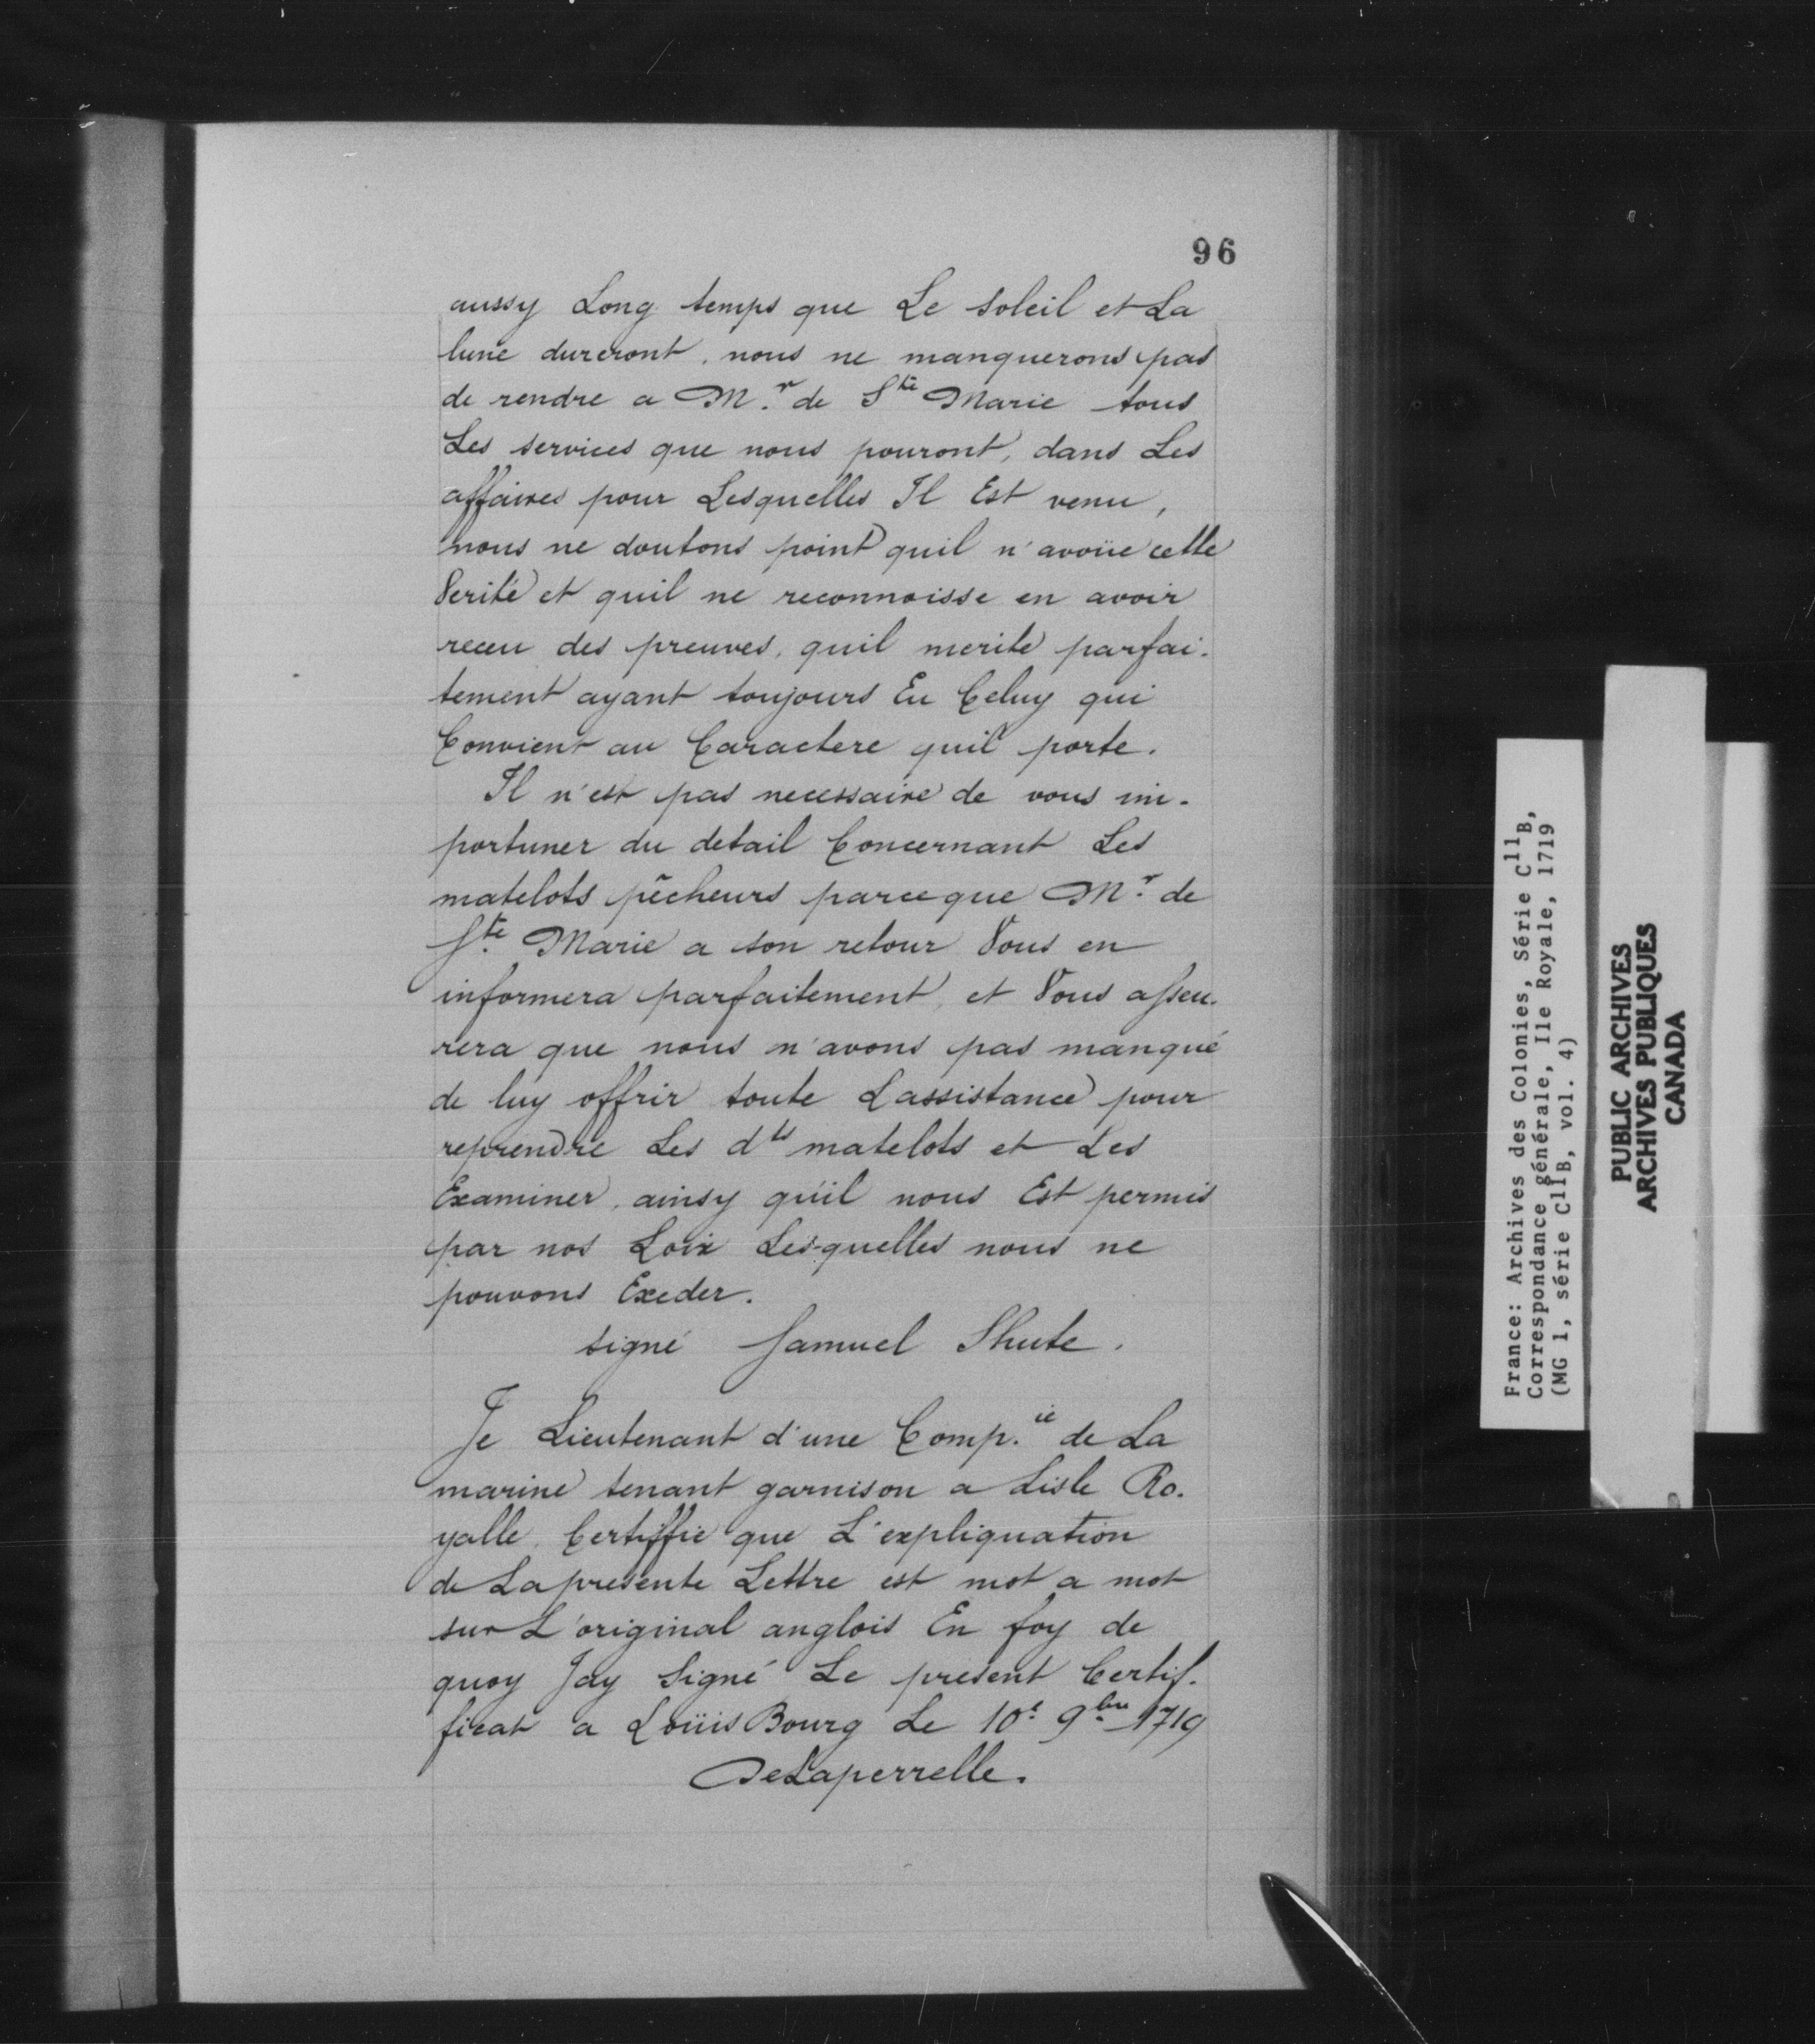 96
aussy Long temps que Le soleil et La
lune dureront, nous ne manquerons pas
de rendre a Mr. de Ste Marie tous
Les services que nous pouront, dans Les
affaires pour Lesquelles Il Est venu,
nous ne doutons point quil n'avoüe cette
Verité et quil ne reconnoisse en avoir
receu des preuves, quil merite parfai-
tement ayant toujours Eu Celuy qui
Convient au Caractere quil porte.
Il n'est pas necessaire de vous im-
portuner du detail Concernant Les
matelots pêcheurs parce que Mr. de
Ste. Marie a son retour Vous en
informera parfaitement, et Vous asseu-
rera que nous n'avons pas manqué
de luy offrir toute Lassistance pour
reprendre Les dts matelots et Les
Examiner, ainsy qu'il nous Est permis
par nos Loix Lesquelles nous ne
pouvons Exeder.
signé Samuel Shute.
Je Lieutenant d'une Comp.ie de La
marine tenant garnison a Lisle Ro-
yalle, Certiffie que L'expliquation
de La presente Lettre est mot a mot
sur L'original anglois En foy de
quoy Jay Signé Le present Certif-
ficat a Loüis Bourg Le 10e 9bre 1719
DeLaperrelle.
France: Archives des Colonies, Série C11B,
Correspondance générale, Ile Royale, 1719
(MG 1, série C11B, vol. 4)
PUBLIC ARCHIVES
ARCHIVES PUBLIQUES
CANADA